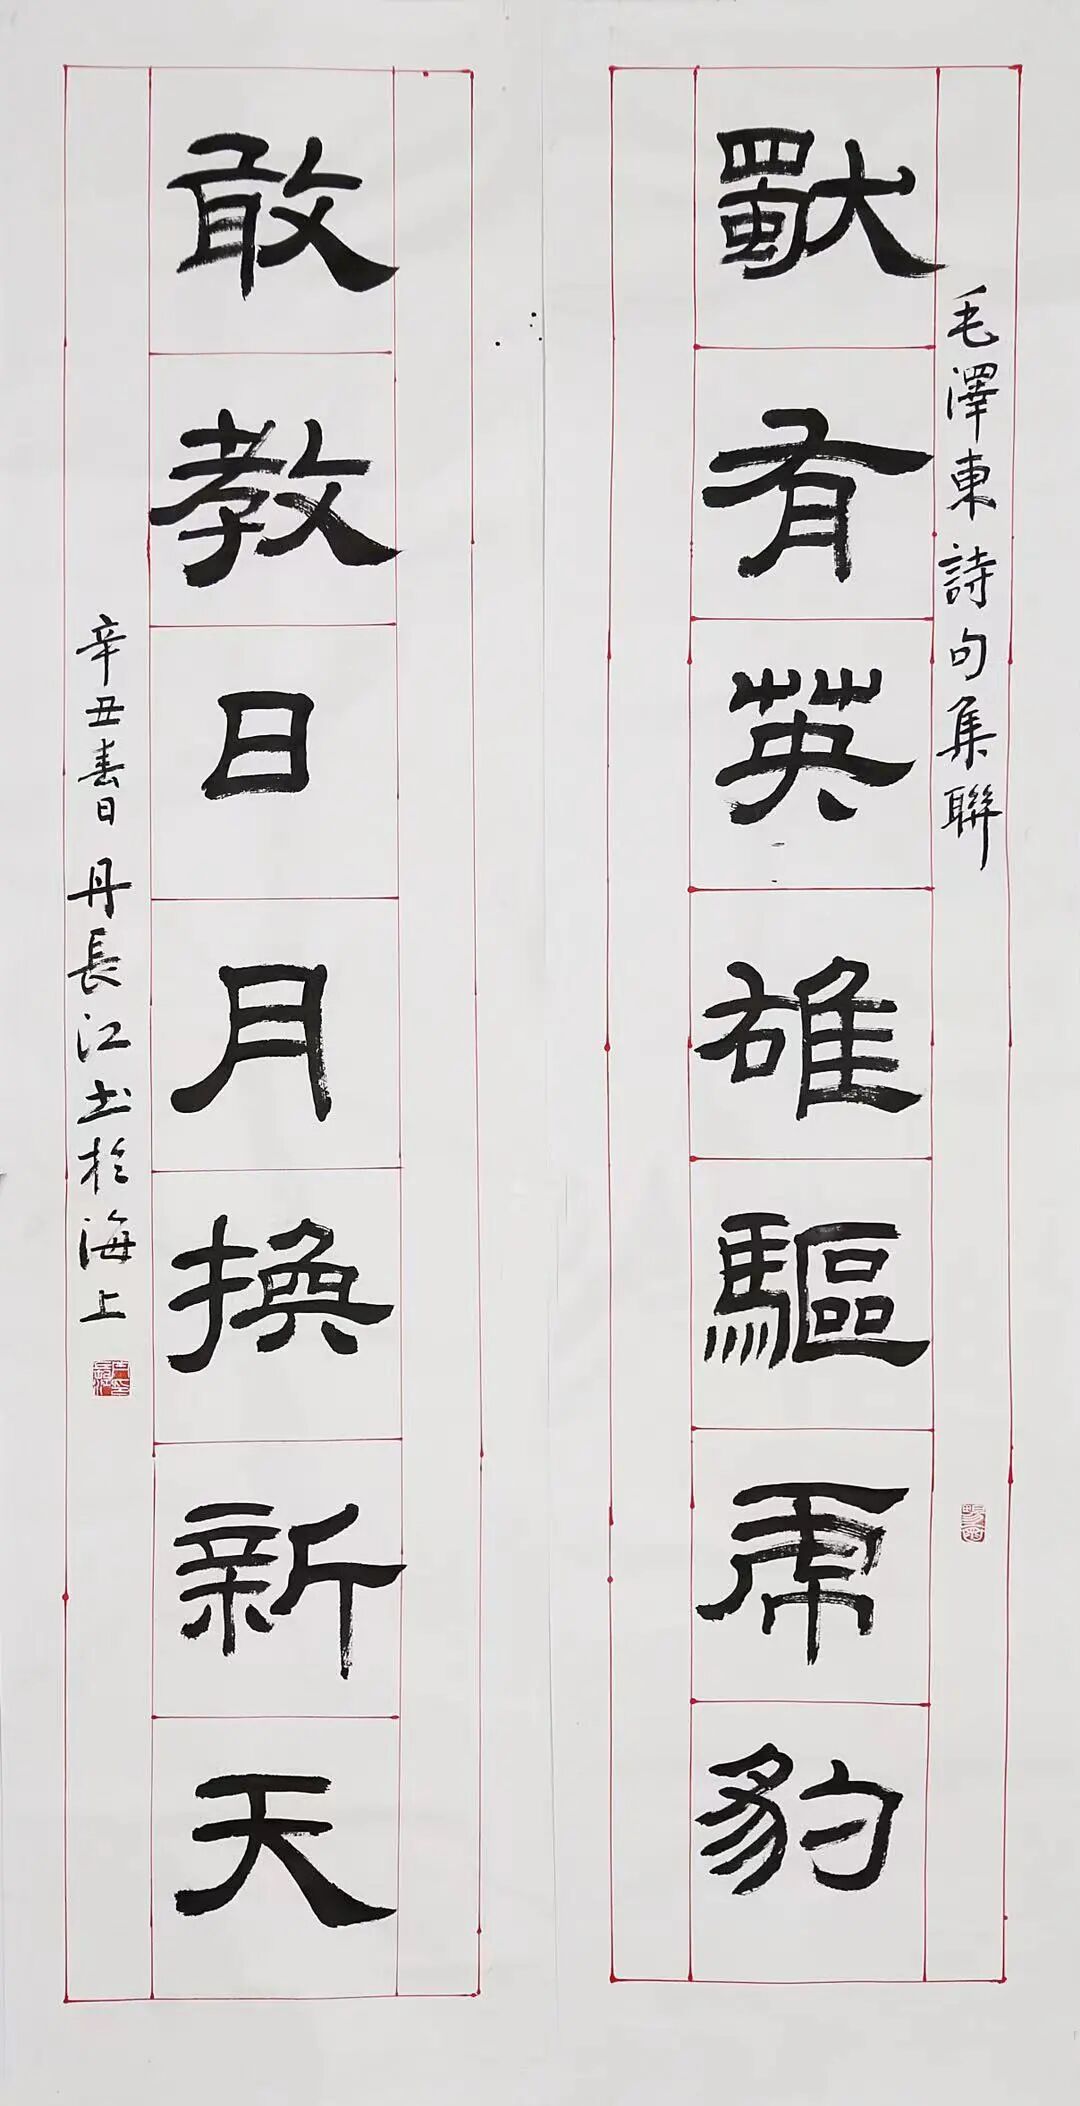 毛澤東詩句集聯
獨有英雄驅虎豹
敢教日月換新天
辛丑春日丹長江书於海上